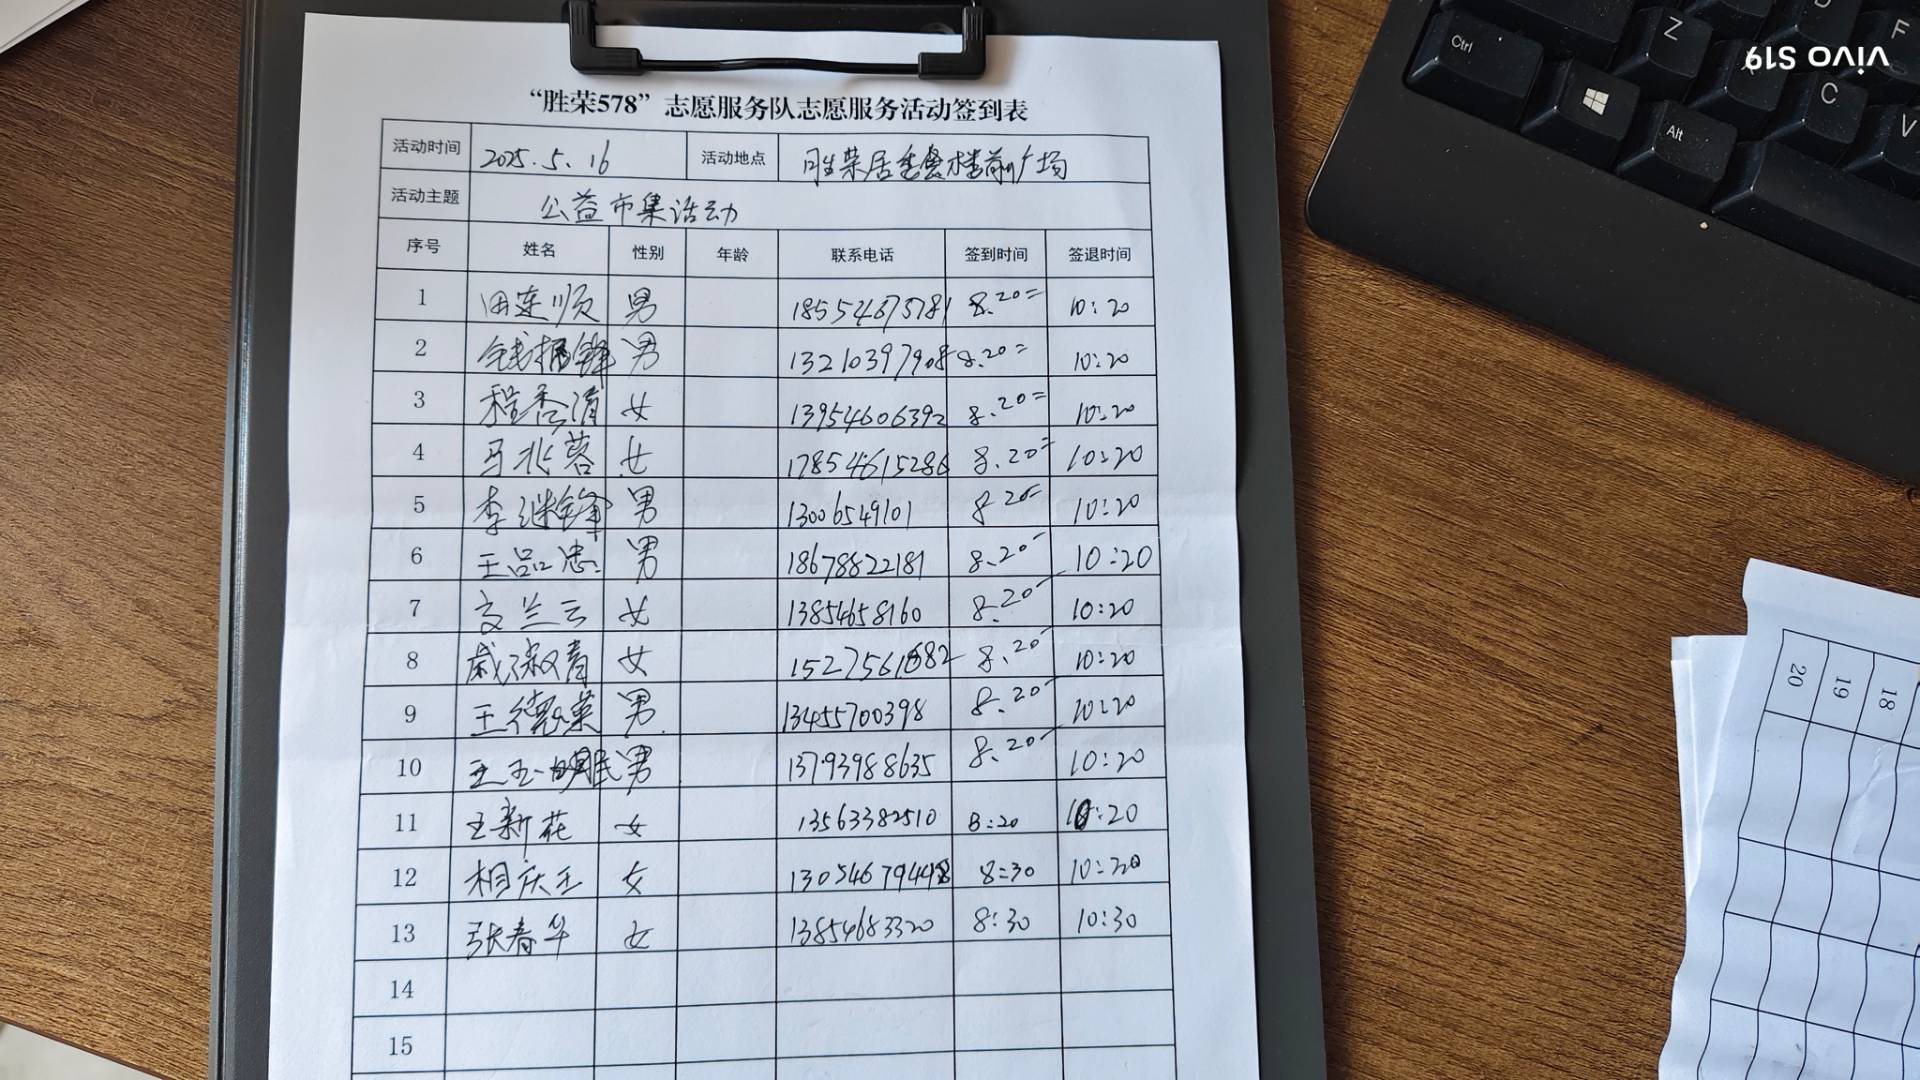 “胜荣578”志愿服务队志愿服务活动签到表
活动时间 2025.5.16 活动地点 胜荣居 楼前广场
活动主题 公益市集活动
序号 姓名 性别 年龄 联系电话 签到时间 签退时间
1 田连顺 男 18554675781 8.20 10:20
2 男 13210397908 8.20 10:20
3 程香清 女 13954606392 8.20 10:20
4 马兆蓉 女 17854615286 8.20 10:20
5 李继锋 男 13006549101 8.20 10:20
6 王品忠 男 18678822181 8.20 10:20
7 文兰云 女 13854658160 8.20 10:20
8 戚淑青 女 15275616682 8.20 10:20
9 王德荣 男 13455700398 8.20 10:20
10 男 13793988635 8.20 10:20
11 王新花 女 13563382510 8:20 10:20
12 相庆玉 女 8:30 10:20
13 张春华 女 13854683320 8:30 10:30
14
15
20
19
18
Ctrl
Alt
Z
C
V
D
F
vivo S19